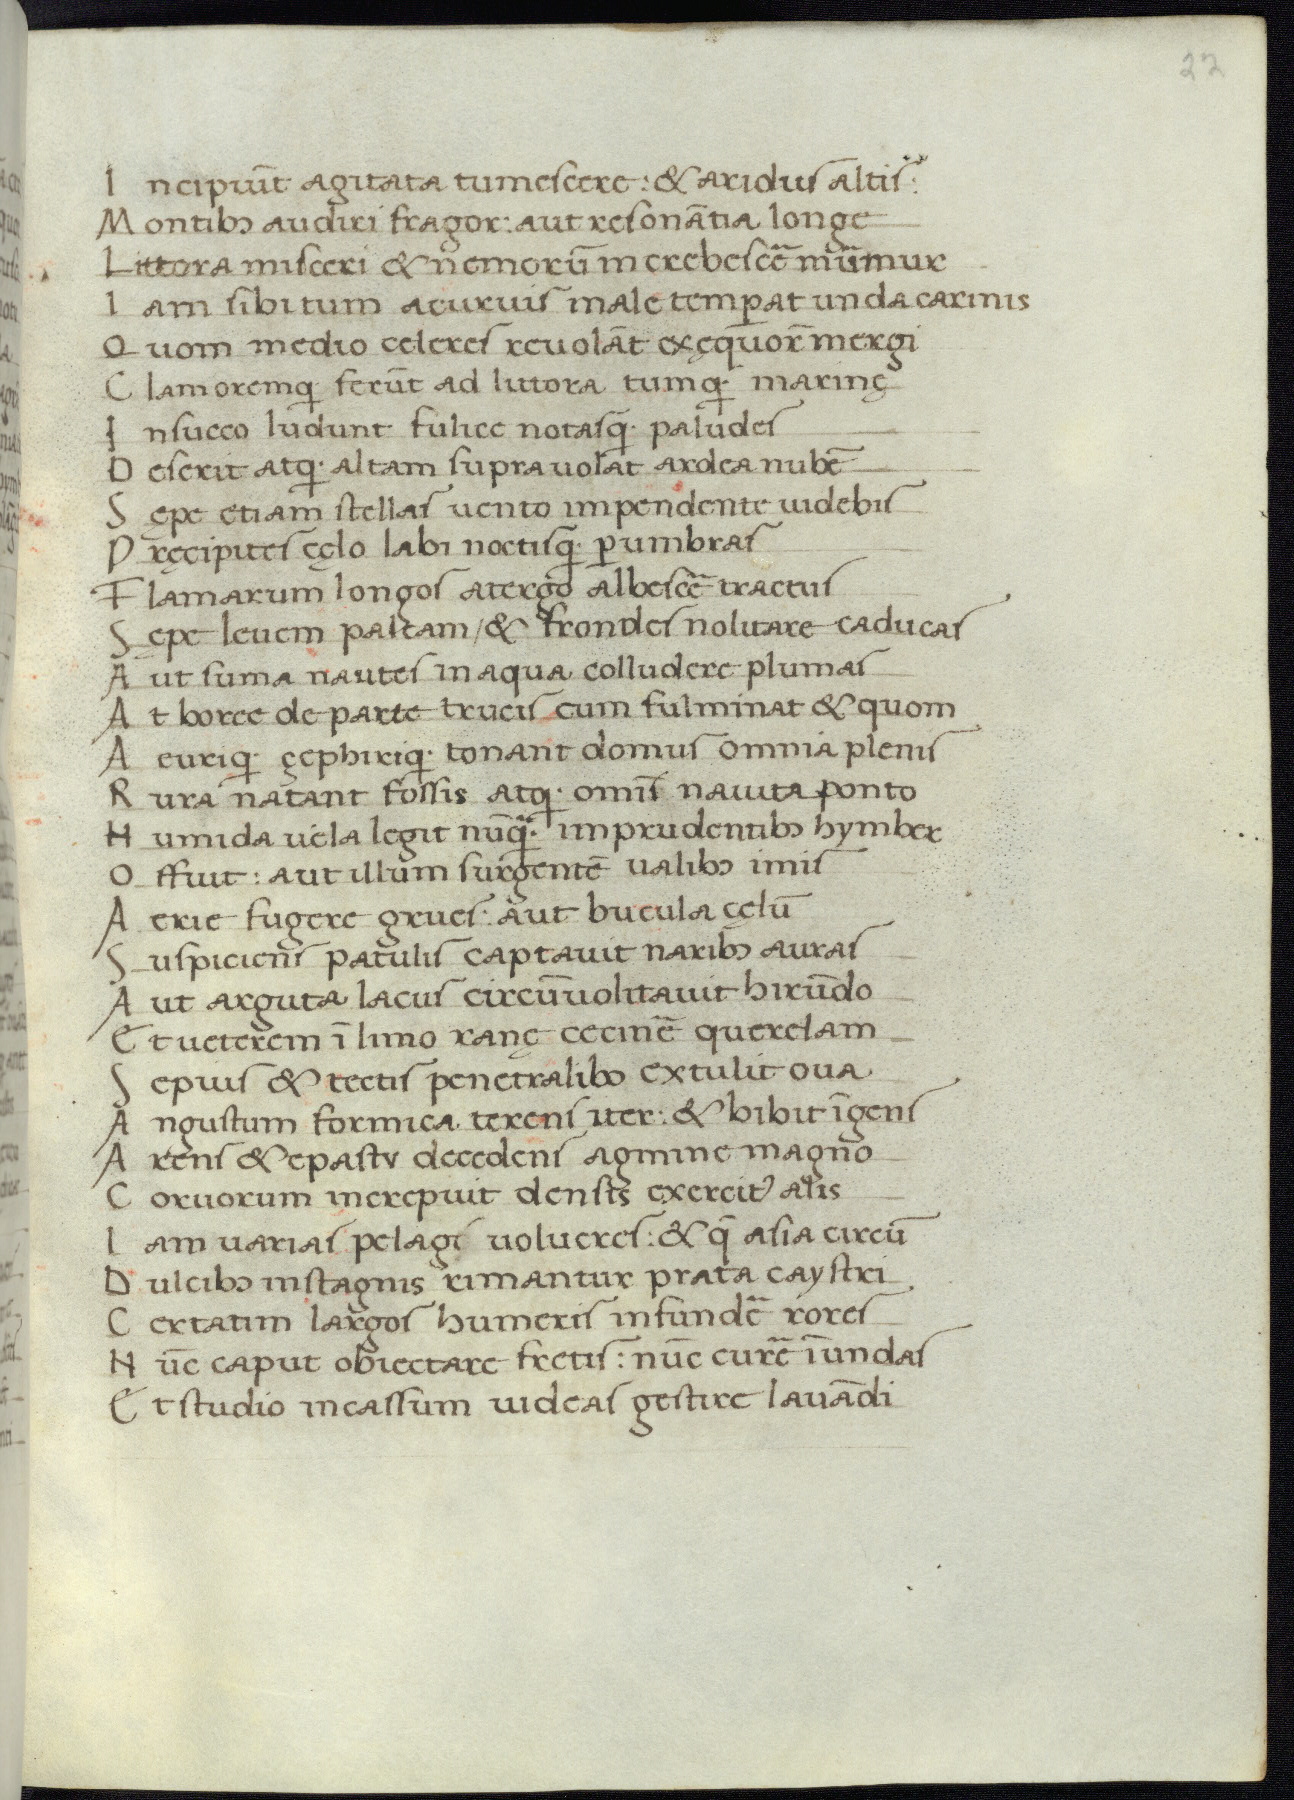 22
I ncipiūt agitata tumescere: & aridus āltis:
M ontibꝰ audiri fragor: aut resonātia longe
L ittora misceri & nemorū increbescē murmur
I am sibi tum acuruis male temꝑat unda carinis
Q vom medio celeres revolāt ex ęquorē mergi
C lamoremq; ferūt ad littora tumq; marinę
I nsicco ludunt fulice notasq; paludes
D eserit atq; altam supra volāt ardea nubē
S ępe etiam stellas uento impendente uidebis
P ręcipites cęlo labi noctisq; ꝑ umbras
F lamarum longos atergo albescē tractus
S epe levem paleam / & frondes nolitare caducas
A ut suma nautes in aqua colludere plumas
A t boree de parte trucis cum fulminat & quom
A euriq; çephiriq; tonant domus omnia plenis
R ura natant fossis atq; omīs navita ponto
H umida uela legit nūq̄; imprudentibꝰ hymber
O ffuit: aut illum surgentē ualibꝰ imis
A erie fugere grues: aut bucula cęlū
S uspiciens patulis captavit naribꝰ auras
A ut arguta lacus circūvolitavit hirūdo
E t ueterem ī limo ranę cecinē querelam
S epius & tectis penetralibꝰ extulit ova
A ngustum formica terens iter: & bibit īgens
A rens & epastv decedens agmine magno
C orvorum increpuit densis exercitꝰ alis
I am varias pelagi volucres: & q̄ asia circū
D ulcibꝰ instagnis rimantur prata caystri
C ertatim largos humeris infundē rores
N ūc caput obiectare fretis: nūc currē īundas
E t studio incassum uideas gestire lavādi